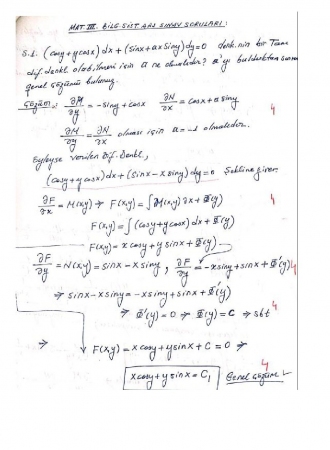 MAT III. BİLG-SİST. ARA SINAV SORULARI:
S.1. (cosy+ycosx)dx+(sinx+axsiny)dy=0 denk.nin bir Tam
dif. denkl. olabilmesi için a ne olmalıdır? a'yı bulduktan sonra
genel çözümü bulunuz.
Çözüm: ∂M/∂y = -siny+cosx ∂N/∂x = cosx+asiny 4
∂M/∂y = ∂N/∂x olması için a=-1 olmalıdır.
Öyleyse verilen Dif. Denkl.,
(cosy+ycosx)dx+(sinx-xsiny)dy=0 şekline girer.
∂F/∂x = M(x,y) ⇒ F(x,y)=∫M(x,y)∂x+Φ(y) 4
F(x,y)=∫(cosy+ycosx)dx+Φ(y)
F(x,y)=xcosy+ysinx+Φ(y)
∂F/∂y = N(x,y)=sinx-xsiny, ∂F/∂y=-xsiny+sinx+Φ'(y) 4
⇒ sinx-xsiny=-xsiny+sinx+Φ'(y)
⇒ Φ'(y)=0 ⇒ Φ(y)=C → sbt 4
⇒ F(x,y)=xcosy+ysinx+C=0 ⇒
xcosy+ysinx=C₁ Genel çözüm 4